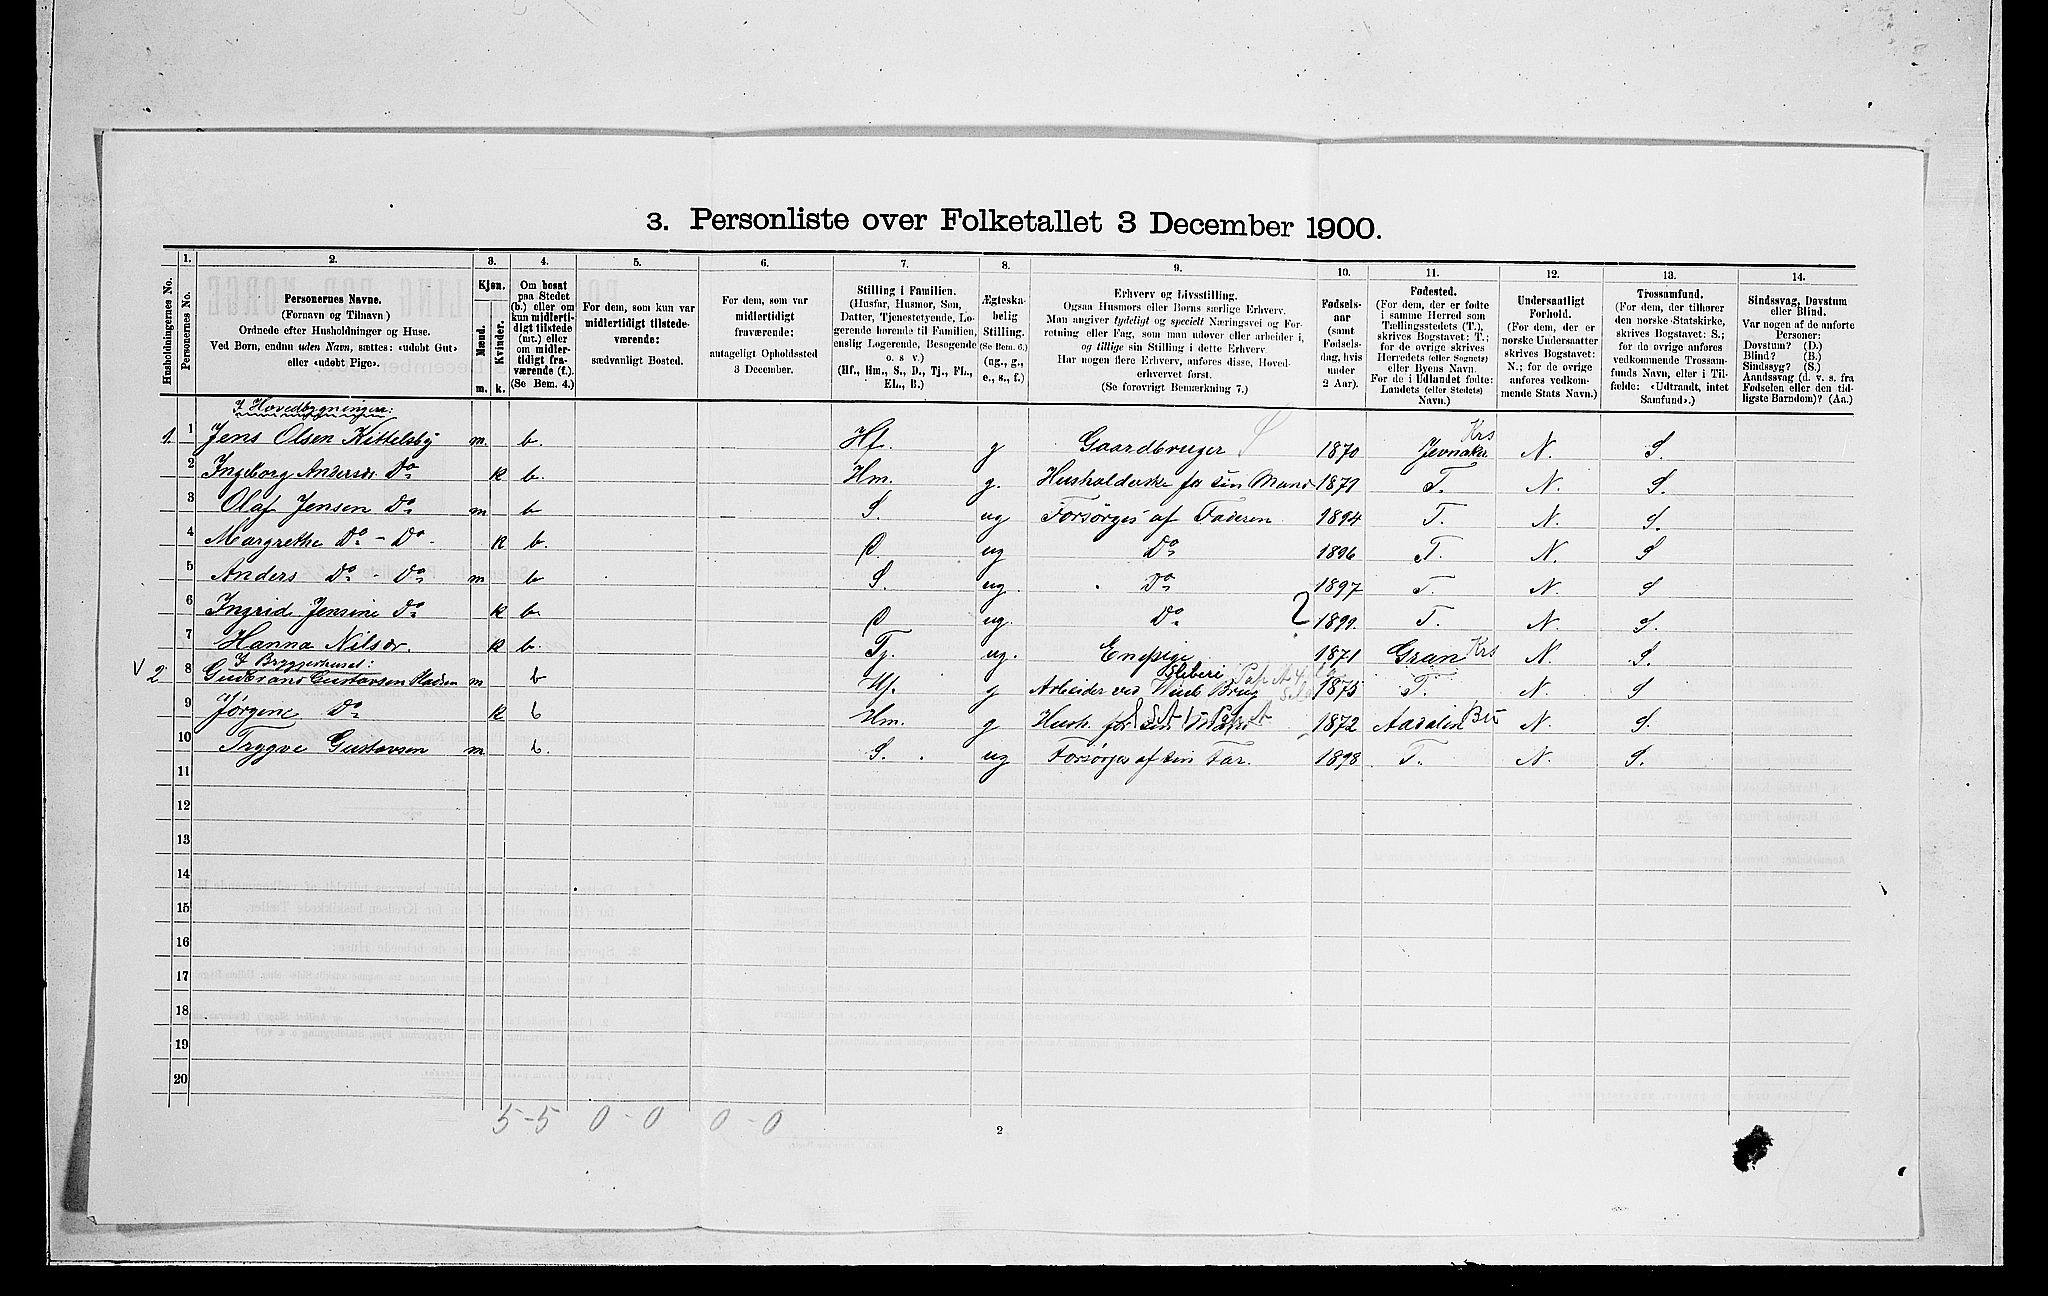 3. Personliste over Folketallet 3 December 1900.
Husholdningernes No.
1. Personernes No.
2. Personernes Navne.
(Fornavn og Tilnavn)
Ordnede efter Husholdninger og Huse.
Ved Børn, endnu uden Navn, sættes: «udøbt Gut»
eller «udøbt Pige».
3. Kjøn.
Mænd. Kvinder.
m. k.
4. Om bosat
paa Stedet
(b.) eller om
kun midlerti-
digt tilstede
(mt.) eller
om midler-
tidigt fra-
værende (f.).
(Se Bem. 4.)
5. For dem, som kun var
midlertidigt tilstede-
værende:
sædvanligt Bosted.
6. For dem, som var
midlertidigt
fraværende:
antageligt Opholdssted
3 December.
7. Stilling i Familien.
(Husfar, Husmor, Søn,
Datter, Tjenestetyende, Lo-
gerende hørende til Familien,
enslig Logerende, Besøgende
o. s v.)
(Hf., Hm., S., D., Tj., FL.,
EL., B.)
8. Ægteska-
belig
Stilling.
(Se Bem. 6.)
(ug., g.,
e., s., f.)
9. Erhverv og Livsstilling.
Ogsaa Husmors eller Børns særlige Erhverv.
Man angiver tydeligt og specielt Næringsvei og For-
retning eller Fag, som man udøver eller arbeider i,
og tillige sin Stilling i dette Erhverv.
Har nogen flere Erhverv, anføres disse, Hoved-
erhvervet først.
(Se forøvrigt Bemærkning 7.)
10. Fødsels-
aar
(samt
Fødsels-
dag, hvis
under
2 Aar).
11. Fødested.
(For dem, der er fødte
i samme Herred som
Tællingsstedets (T.),
skrives Bogstavet: T.;
for de øvrige skrives
Herredets (eller Sognets)
eller Byens Navn.
For de i Udlandet fødte:
Landets (eller Stedets)
Navn.)
12. Undersaatligt
Forhold.
(For dem, der er
norske Undersaatter
skrives Bogstavet:
N.; for de øvrige
anføres vedkom-
mende Stats Navn.)
13. Trossamfund.
(For dem, der tilhører
den norske Statskirke,
skrives Bogstavet: S.;
for de øvrige anføres
vedkommende Trossam-
funds Navn, eller i Til-
fælde: «Udtraadt, intet
Samfund».)
14. Sindssvag, Døvstum
eller Blind.
Var nogen af de anførte
Personer:
Døvstum? (D.)
Blind? (B.)
Sindssyg? (S.)
Aandssvag (d. v. s. fra
Fødselen eller den tid-
ligste Barndom)? (Aa.)
I Hovedbygningen:
1. 1 Jens Olsen Kittelsby m. b. Hf. g Gaardbruger 1870 Jevnaker Krs N. S.
2 Ingeborg Andersdr Do k b. Hm. g. Husholderske for sin Mand 1871 T. N. S.
3 Olaf Jensen Do m b S. ug Forsørges af Faderen 1894 T. N. S.
4 Margrethe Do - Do k b. D. ug Do 1896 T. N. S
5 Anders Do - Do m b S. ug. Do 1897 T. N. S
6 Ingrid Jensine Do k b. D ug. Do 2 1899. T. N. S.
7 Hanna Nilsdr. k b. Tj. ug. Enepige 1871 Gran Krs N. S.
I Bryggerhuset:
V 2 8 Gudbrand Gustavsen m b Hf. g Arbeider ved Sliberi Brug 1875 T. N. S
9 Jørgene Do k b Hm. g Hush. for sin 1872 Aadalen Bu N. S.
10 Trygve Gustavsen m b. S. ug Forsørges af sin Far. 1898 T. N. S.
11
12
13
14
15
16
17
18
19
20
5-5 0-0 0-0
2